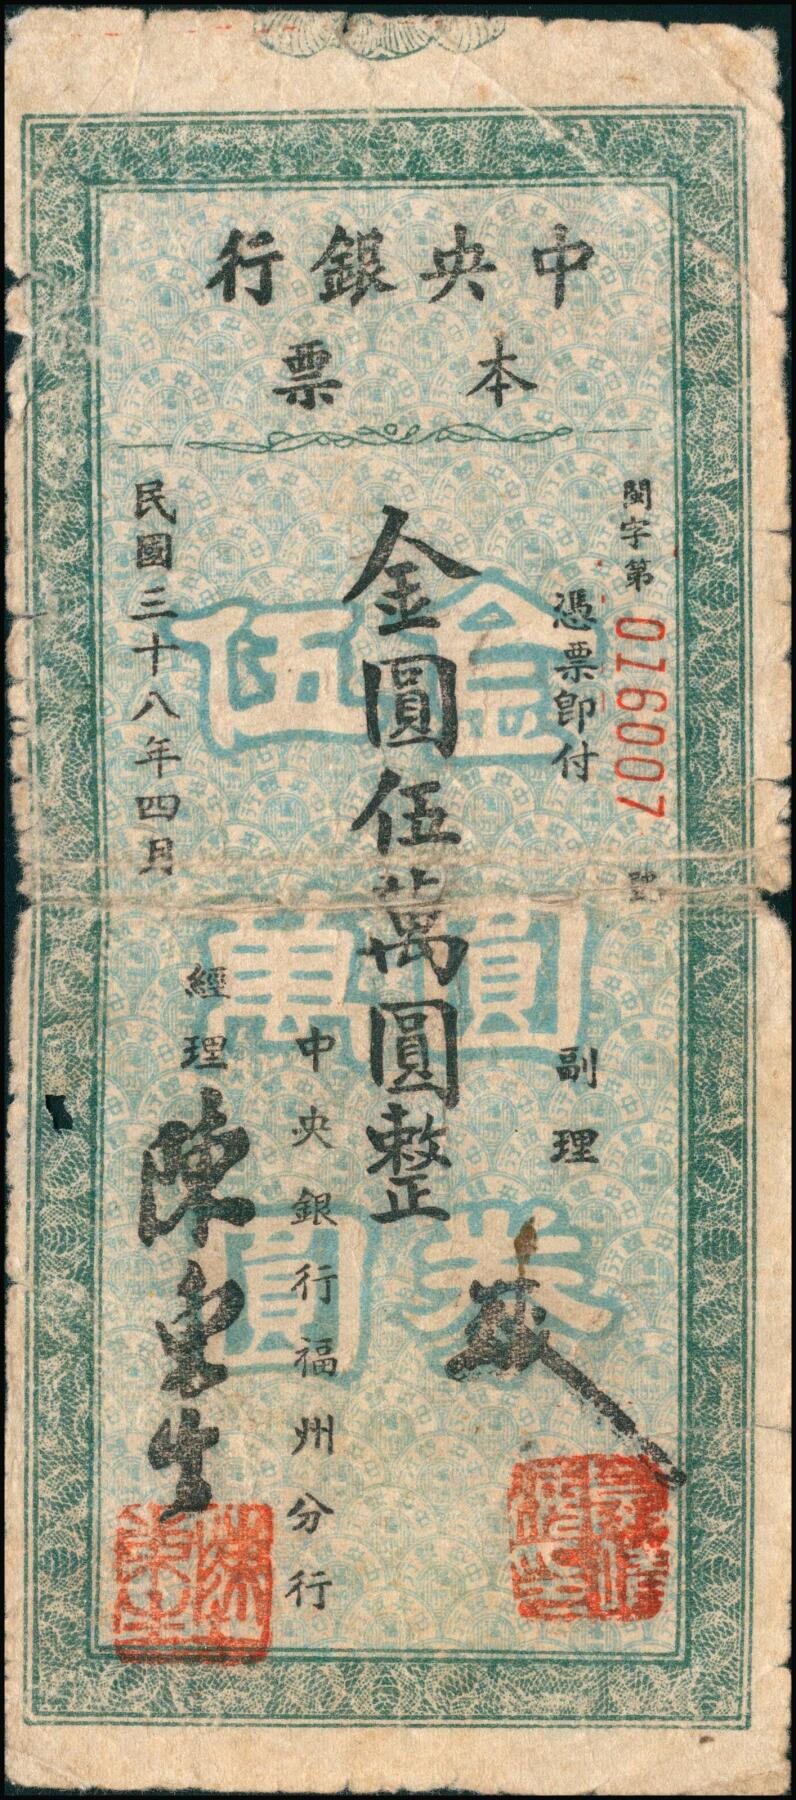 中央銀行
本票
閩字第016007號
憑票即付
金圓伍萬圓整
金圓券
伍萬圓
副理
中央銀行福州分行
經理 陳東生
民國三十八年四月